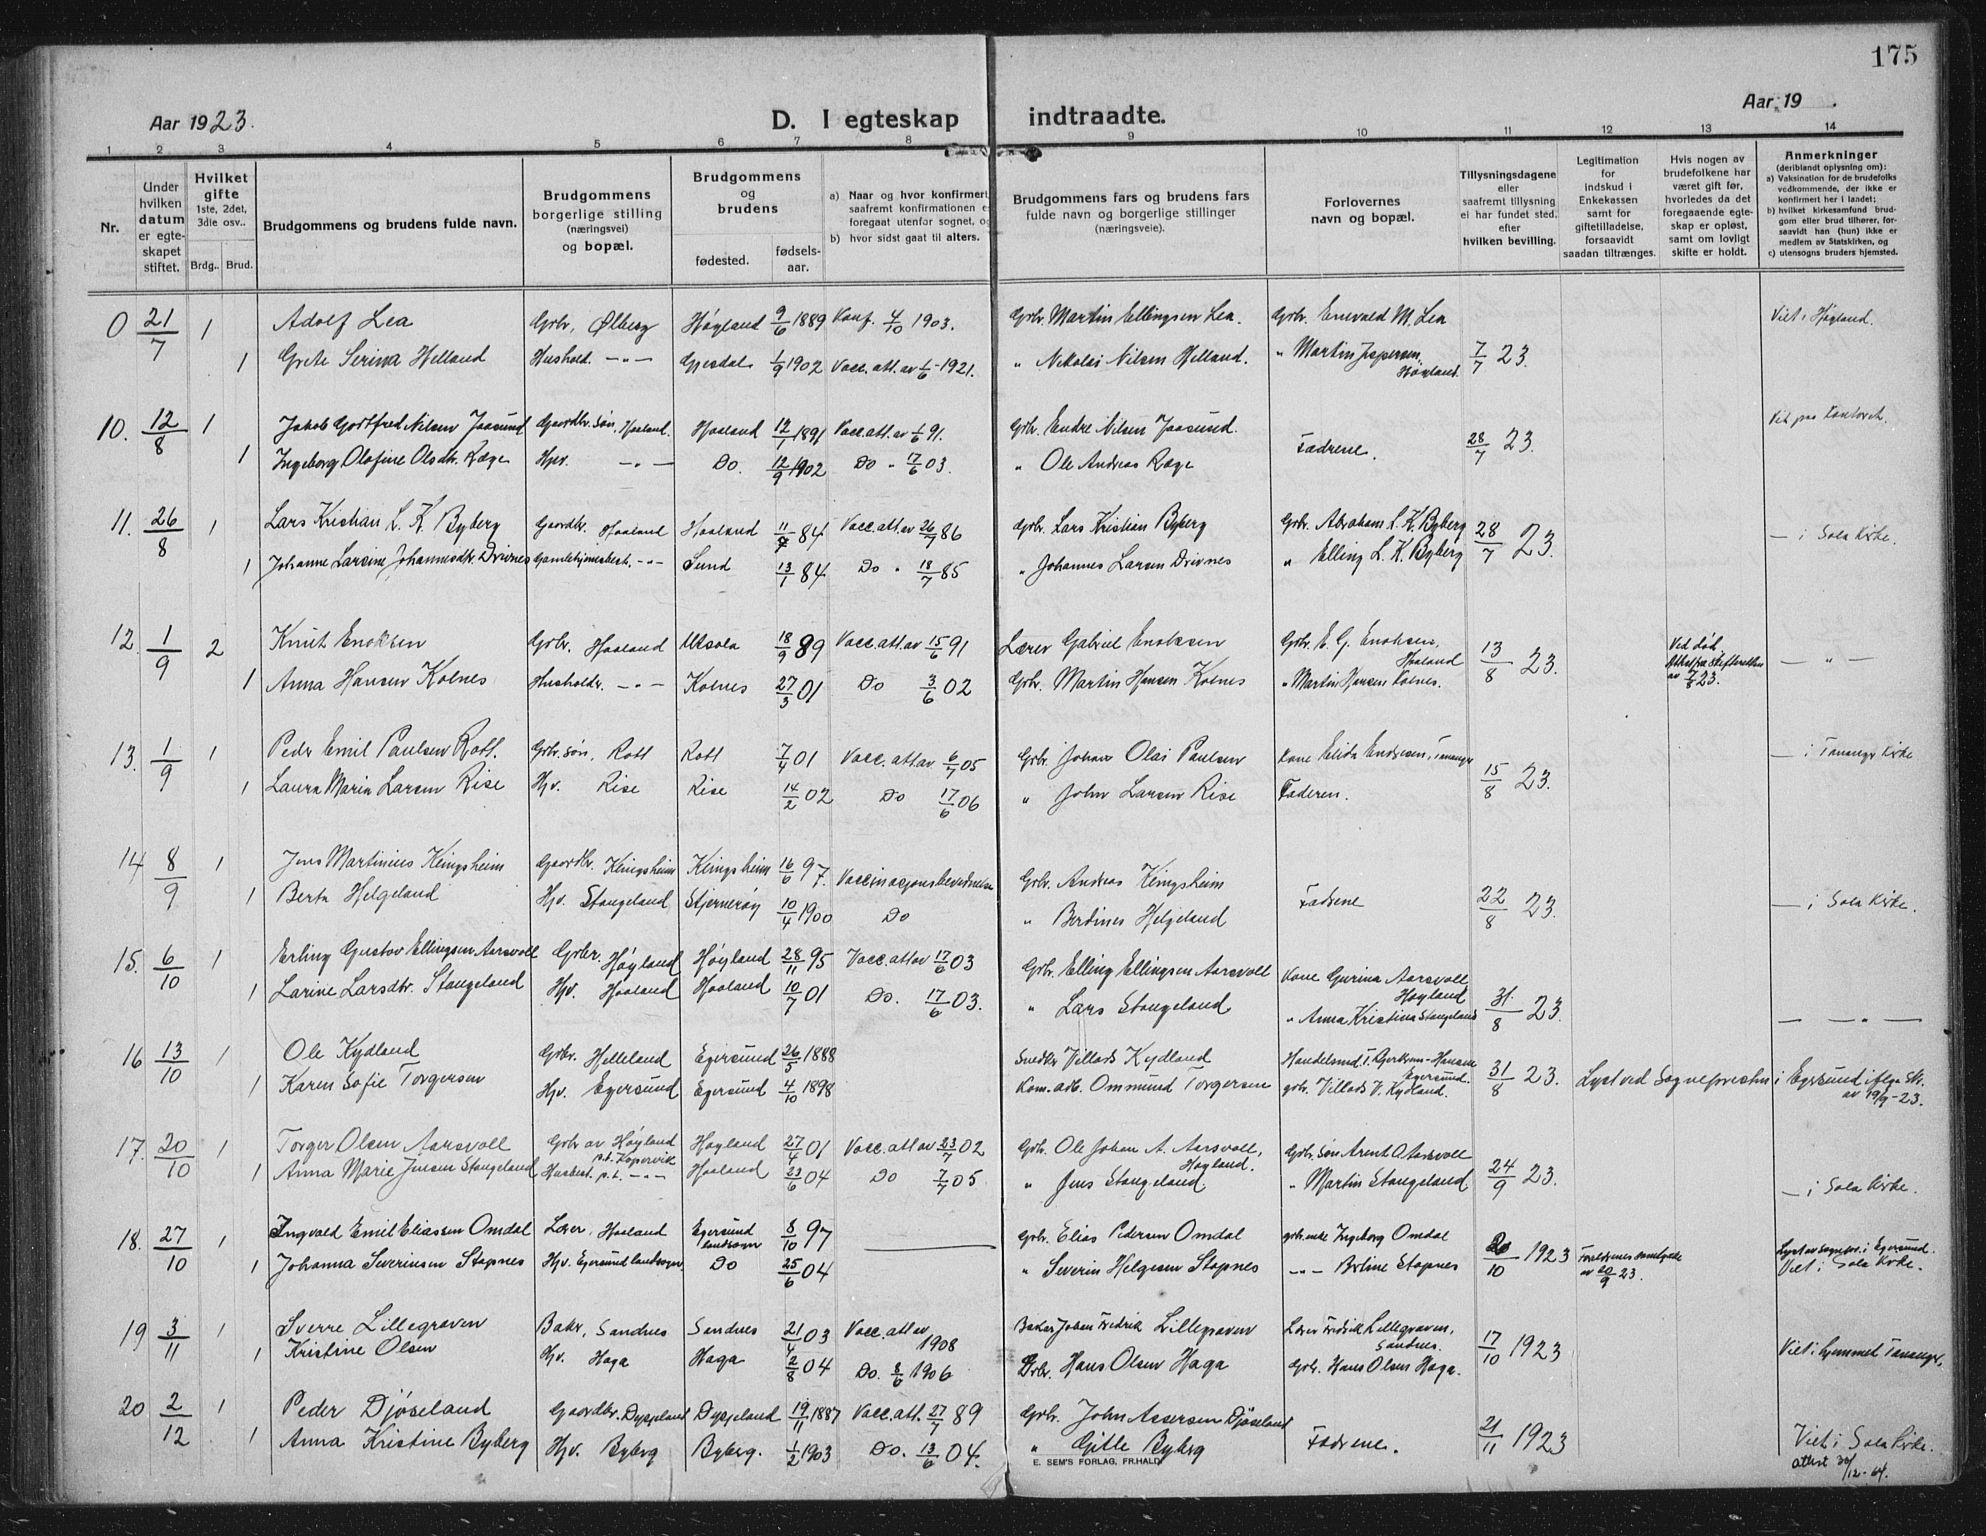 175
Aar 1923.
D. I egteskap indtraadte.
Aar 19 .
1 2 3 4 5 6 7 8 9 10 11 12 13 14
Nr.
Under hvilken datum er egteskapet stiftet.
Hvilket gifte 1ste, 2det, 3die osv..
Brdg.. Brud.
Brudgommens og brudens fulde navn.
Brudgommens borgerlige stilling (næringsvei) og bopæl.
Brudgommens og brudens
fødested. fødselsaar.
a) Naar og hvor konfirmert, saafremt konfirmationen er foregaat utenfor sognet, og
b) hvor sidst gaat til alters.
Brudgommens fars og brudens fars fulde navn og borgerlige stillinger (næringsveie).
Forlovernes navn og bopæl.
Tillysningsdagene eller saafremt tillysning ei har fundet sted, efter hvilken bevilling.
Legitimation for indskud i Enkekassen samt for giftetilladelse, forsaavidt saadan tiltrænges.
Hvis nogen av brudefolkene har været gift før, hvorledes da det foregaaende egteskap er opløst, samt om lovligt skifte er holdt.
Anmerkninger (deriblandt oplysning om):
a) Vaksination for de brudefolks vedkommende, der ikke er konfirmert her i landet;
b) hvilket kirkesamfund brudgom eller brud tilhører, forsaavidt han (hun) ikke er medlem av Statskirken, og
c) utensogns bruders hjemsted.
0 21/7 1 Adolf Lea Grbr, Ølberg Høyland 9/6 1889 Konf. 4/10 1903. Grbr. Martin Ellingsen Lea. Grbr. Enevald M. Lea Viet i Høyland.
1 Grete Serina Helland Hushold. -"- Gjesdal 1/9 1902 Vacc. att. av 1/6-1921. " Nikolai Nilsen Helland. " Martin Jespersen, Høyland. 7/7 23.
10. 12/8 1 Jakob Gottfred Nilsen Jaasund Gaardbr. Søn, Haaland. Haaland 12/1 1891 Vacc. att. av 1/6 91. Grbr. Endre Nilsen Jaasund. Fædrene. 28/7 23. Viet paa Kontoret.
1 Ingeborg Olafine Olsdtr. Ræge Hjv. -"- Do. 12/9 1902 Do " 17/6 03. " Ole Andreas Ræge
11. 26/8 1 Lars Kristian L. K. Byberg Gaardbr. Haaland Haaland 84 Vacc. att. av 26/7 86 Grbr. Lars Kristian Byberg Grbr. Abraham L. K. Byberg 28/7 23. — i Sola Kirke.
1 Johanne Larsine Johannesdtr. Drivnes Gamlehjemsbest. -"- Sund 13/1 84 Do " 18/7 85 " Johannes Larsen Drivnes " Elling L. K. Byberg
12. 1/9 2 Knut Enoksen Grbr. Haaland Utsola 18/9 89 Vacc. att. av 15/6 91 Lærer Gabriel Enoksen Grbr. E. G. Enoksen, Haaland 13/8 23. Ved død, av 7/8 23. — " —
1 Anna Hansen Kolnes Husholdr. -"- Kolnes 27/3 01 Do 3/6 02 Grbr. Martin Hansen Kolnes " Martin Hansen Kolnes.
13. 1/9 1 Peder Emil Paulsen Rott. Grbr. Søn, Rott Rott 7/4 01 Vacc. att av 6/7 05 Grbr. Johan Olai Paulsen Kone Elida Endresen, Tananger 15/8 23. — i Tananger Kirke
1 Laura Maria Larsen Rise Hjv. Rise Rise 14/2 02 Do 17/6 06 " John Larsen Rise Faderen.
14 8/9 1 Jens Martinius Kingsheim Gaardbr. Kingsheim Kingsheim 16/6 97. Vaccinasjonsbevidnelse Grbr. Andreas Kingsheim Fædrene 22/8 23. — i Sola Kirke.
1 Berta Helgeland Hjv. Stangeland Stjernerøy 10/4 1900 Do " Berdines Helgeland
15. 6/10 1 Erling Gustav Ellingsen Aarsvoll Grbr. Høyland Høyland 28/11 95 Vacc. att av 17/6 03 Grbr. Elling Ellingsen Aarsvoll Kone Gurina Aarsvoll Høyland 31/8 23. — " —
1 Larine Larsdtr. Stangeland Hjv. Haaland Haaland 10/7 01 Do. 17/6 03. " Lars Stangeland " Anna Kristina Stangeland
16 13/10 1 Ole Kydland Grbr. Helleland Egersund 26/5 1888 Snedker Villads Kydland Handelsmd. Hansen Egersund. 31/8 23. Lyst ved Sognepresten i Egersund ifølge Sk. av 19/9-23.
1 Karen Sofie Torgersen Hjv. Egersund Egersund 4/10 1898 Kom. arb. Ommund Torgersen grbr. Villads V. Kydland.
17. 20/10 1 Torger Olsen Aarsvoll Grbr av Høyland p.t. Kopervik Høyland 27/4 01 Vacc. att av 23/7 02 Grbr. Ole Johan A. Aarsvoll, Høyland. Grbr. Søn Arent O Aarsvoll 24/9 23. — i Sola Kirke.
1 Anna Marie Jensen Stangeland Husbest. p.t. -"- Haaland 23/6 04 Do 7/7 05 " Jens Stangeland. " Martin Stangeland
18. 27/10 1 Ingvald Emil Eliassen Omdal Lærer, Haaland Egersund landsogn 8/10 97 Grbr. Elias Pedersen Omdal grbr. enke Ingeborg Omdal 20/10 1923 Foreldrenes samtykke av 20/9 23. Lyst av sognepr. i Egersund. Viet i Sola Kirke.
1 Johanna Severinsen Stapnes Hjv. Egersund landsogn Do 25/6 04 " Severin Helgesen Stapnes -"- Berline Stapnes
19 3/11 1 Sverre Lillegraven Baker, Sandnes Sandnes 21/4 03 Vacc. att av 1908 Baker Johan Fredrik Lillegraven Lærer Fredrik Lillegraven, Sandnes. 17/10 1923 Viet i hjemmet Tananger.
1 Kristine Olsen Hjv. Haga Haga 2/8 04 Do. 8/6 1906 Grbr. Hans Olsen Haga Grbr. Hans Olsen Haga.
20 2/12 1 Peder Djøseland Gaardbr. Dysjeland Dysjeland 19/11 1887 Vacc. att. 27/7 89 Grbr. John Assersen Djøseland Fædrene. 21/11 1923 Viet i Sola Kirke.
1 Anna Kristine Byberg Hjv. Byberg Byberg. 1/2 1903 Do. 13/6 04. " Gitle Byberg attest 30/12-64.
E. SEM'S FORLAG, FR.HALD